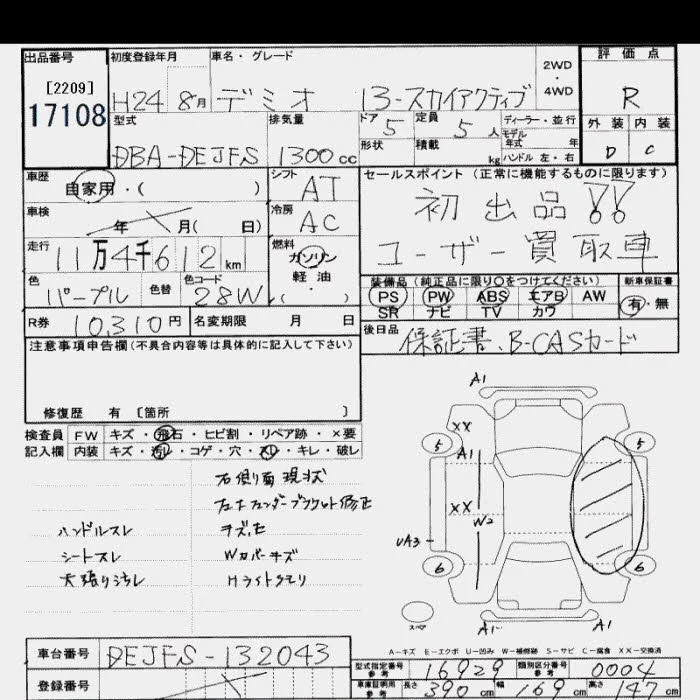 出品番号 初度登録年月 車名・グレード 2WD・4WD 評価点
[2209]
17108 H24 8月 デミオ 13-スカイアクティブ R
型式 排気量 ドア 5 定員 5人 ディーラー・並行 外装 内装
モデル年式 年
DBA-DEJFS 1300cc 形状 積載 kg ハンドル 左・右 D C
車歴 自家用・( ) シフト AT セールスポイント (正常に機能するものに限ります)
車検 年 月( 日) 冷房 AC 初出品!!
走行 11万4千612km 燃料 ガソリン 軽油 ・( ) ユーザー買取車
色 パープル 色替 色コード 28W 装備品 (純正品に限り○をつけてください) 新車保証書
PS PW ABS エアB AW 有・無
SR ナビ TV カワ
R券 10,310円 名変期限 月 日 後日品 保証書、B-CASカード
注意事項申告欄(不具合内容等は具体的に記入して下さい)
修復歴 有 [箇所 ]
検査員 FW キズ・飛石・ヒビ割・リペア跡・×要
記入欄 内装 キズ・汚レ・コゲ・穴・スレ・キレ・破レ
右側面現状
左右フェンダーブラケット修正
ハンドルスレ キズ、凹
シートスレ Wカバーキズ
天張り汚レ Hライトクモリ
A1
XX
5 5
A1
XX
W2
UA3
6 6
スペア
A1 A1
A-キズ E-エクボ U-凹み W-補修跡 S-サビ C-腐食 XX-交換済
車台番号 DEJFS-132043
型式指定番号 参考 16929 類別区分番号 参考 0004
登録番号 車庫証明用 参考 長さ 390cm 幅 169cm 高さ 147cm